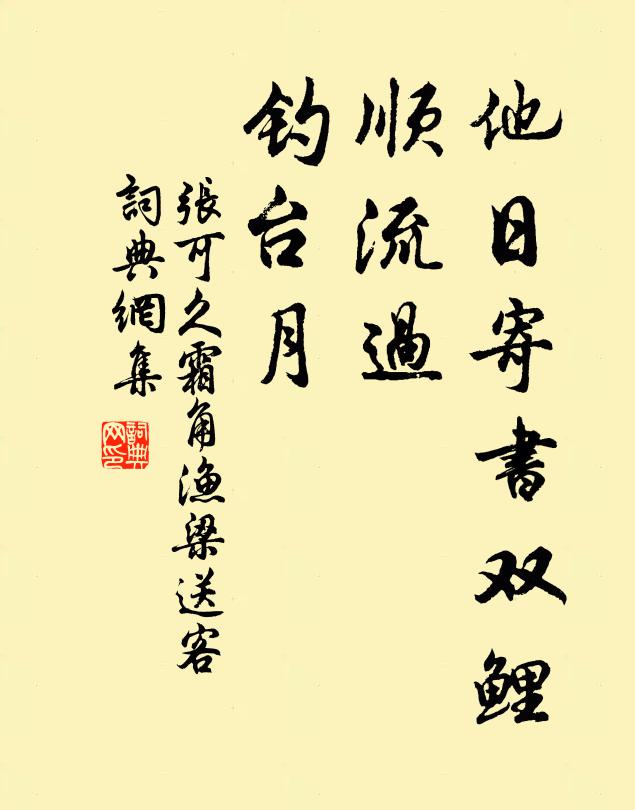 他日寄书双鲤
顺流过
钓台月
張可久霜角渔梁送客
詞典網集
詞典网印